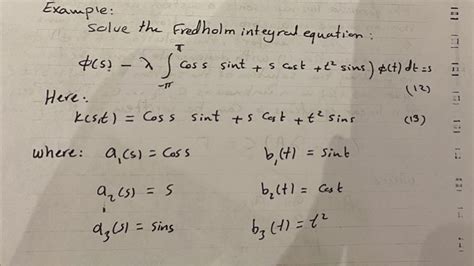 Example:
Solve the Fredholm integral equation:
φ(s) - λ ∫_{-π}^{π} cos s sin t + s cos t + t² sin s) φ(t) dt = s
(12)
Here:
K(s,t) = Cos s sin t + s Cos t + t² sin s (13)
where: a₁(s) = Cos s b₁(t) = sin t
a₂(s) = s b₂(t) = Cos t
a₃(s) = sin s b₃(t) = t²